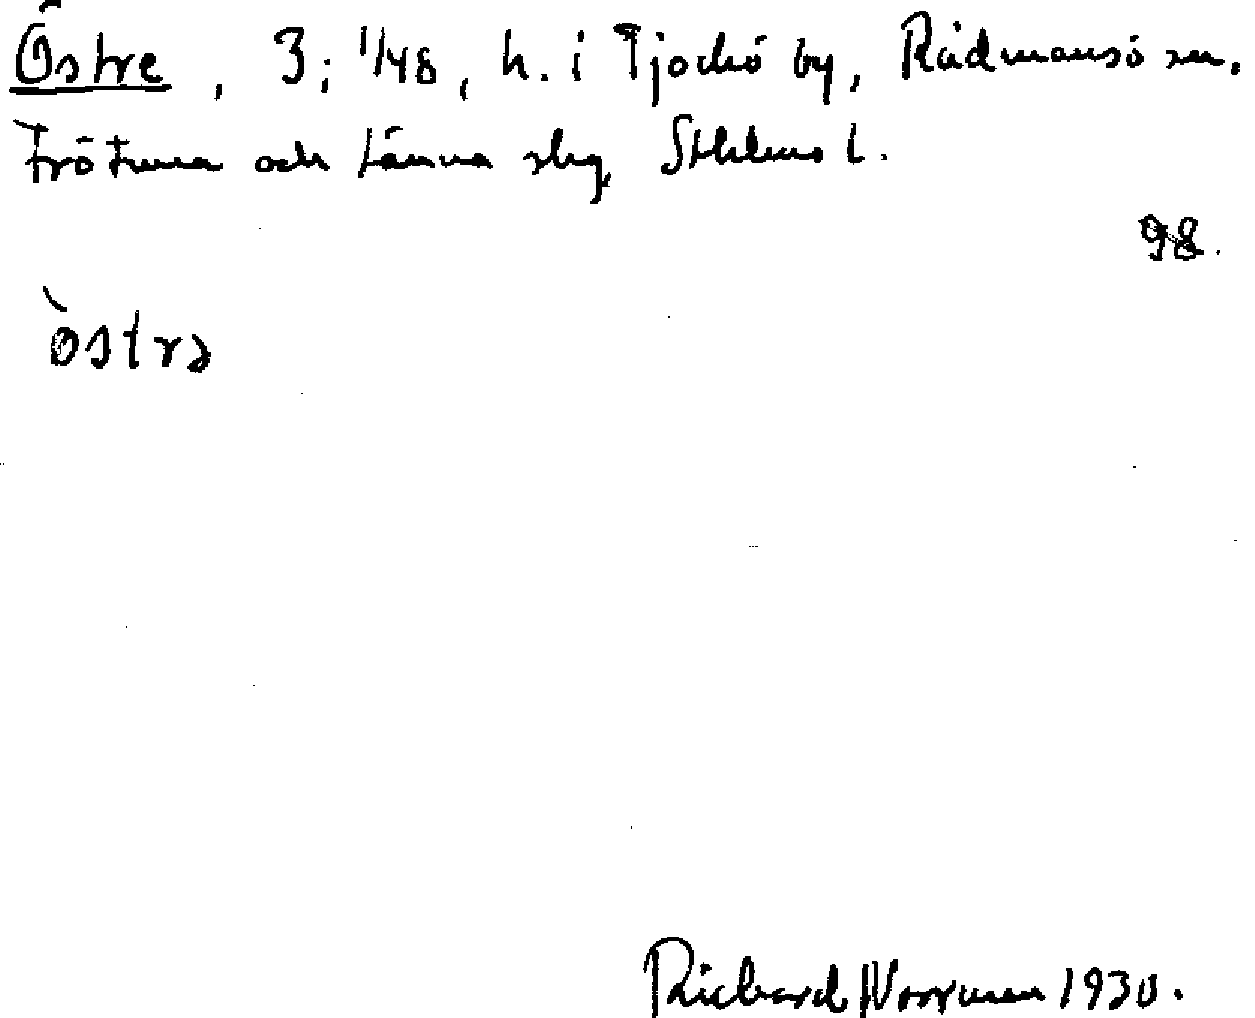 Östre, 3; 1/48, h. i Tjockö by, Rådmansö sn.
Frötuna och Länna slg, Sthlms l.
98.
òstrə
Richard Norrman 1930.